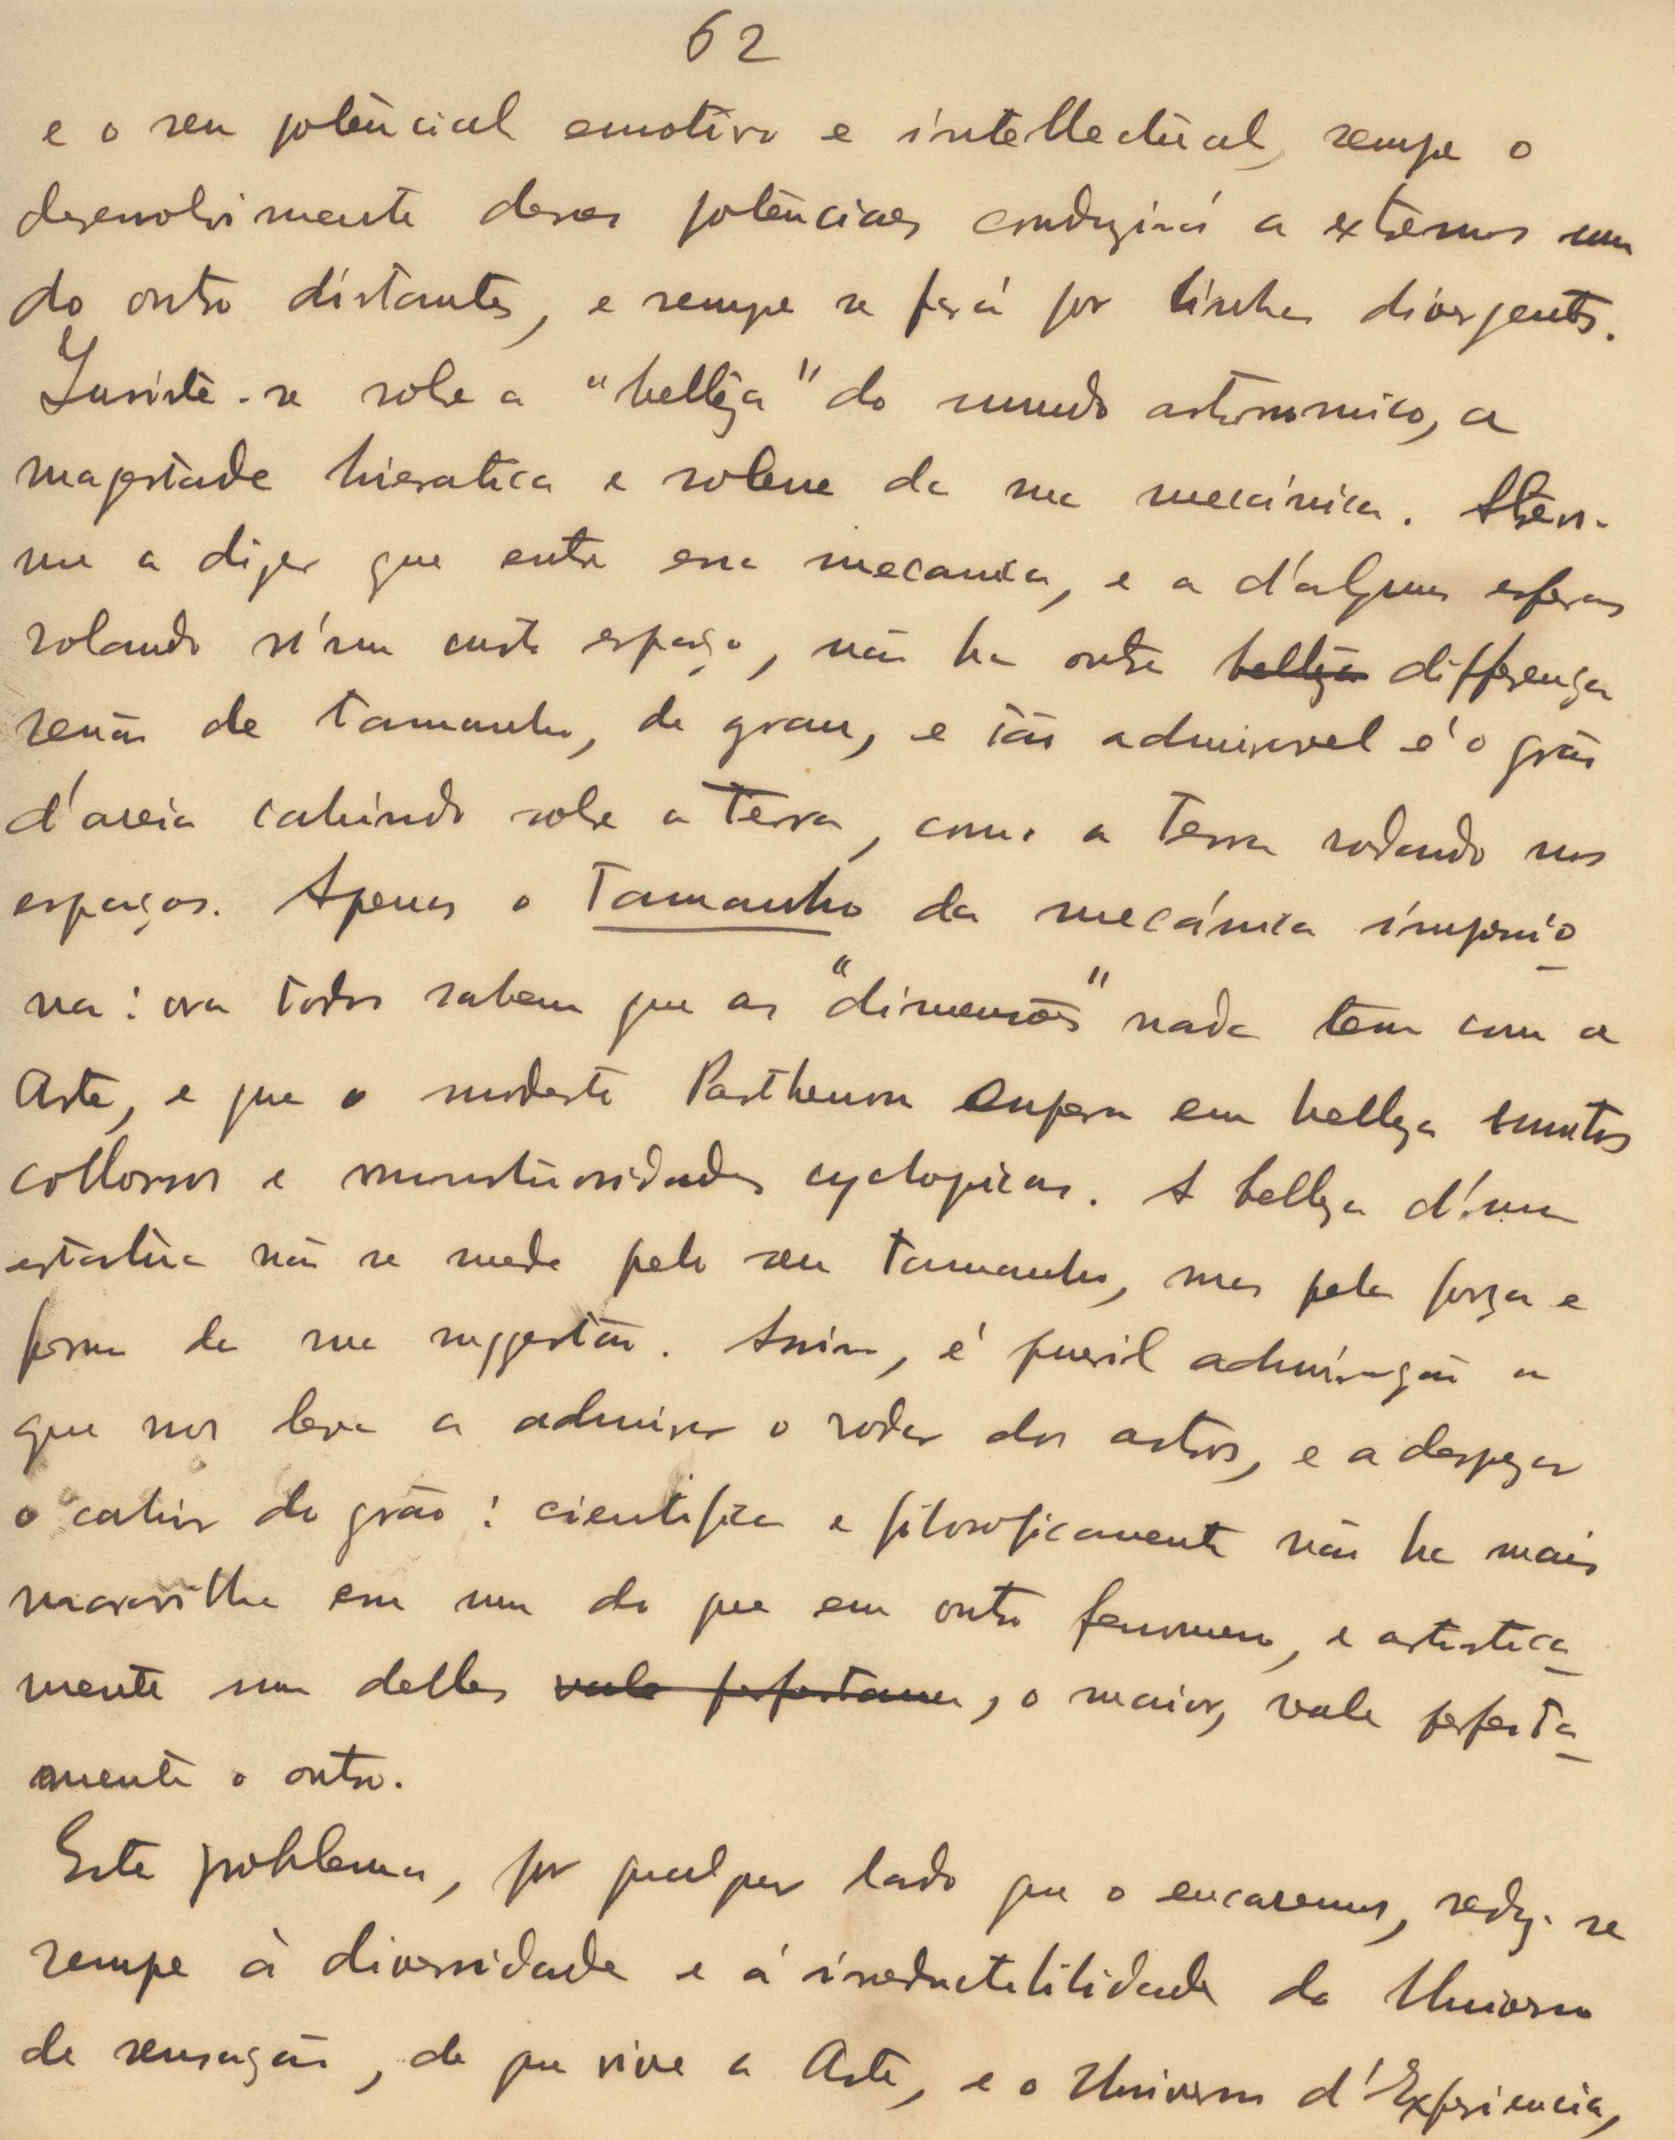 62
e o seu potêncial emotivo e intellectual, sempre o
desenvolvimento desses potenciaes conduzirá a extremos um
do outro distantes, e sempre se fará por linhas divergentes.
Insiste-se sobre a "belleza" do mundo astronomico, a
magestade hieratica e solene da sua mecánica. Atrevo-
me a dizer que entre essa mecanica, e a d'algumas esferas
rolando n'um curto espaço, não ha outra belleza differença
senão de tamanho, de grau, e tão admiravel é o grão
d'areia cahindo sobre a terra, como a Terra rodando nos
espaços. Apenas o Tamanho da mecánica impressio
na: ora todos sabem que as "dimensões" nada tem com a
Arte, e que o modesto Parthenon supera em belleza muitos
collossos e monstruosidades cyclopicas. A belleza d'uma
estatua não se mede pelo seu tamanho, mas pela força e
forma da sua suggestão. Assim, é pueril admiração a
que nos leva a admirar o rodar dos astros, e a desprezar
o cahir do grão: cientifica e filosoficamente não ha mais
maravilha em um do que em outro fenomeno, e artistica
mente um delles vale perfeitamen, o maior, vale perfeita
mente o outro.
Este problema, por qualquer lado que o encaremos, reduz-se
sempre à diversidade e á irreductibilidade do Universo
de sensação, de que vive a Arte, e o Universo d'Experiencia,